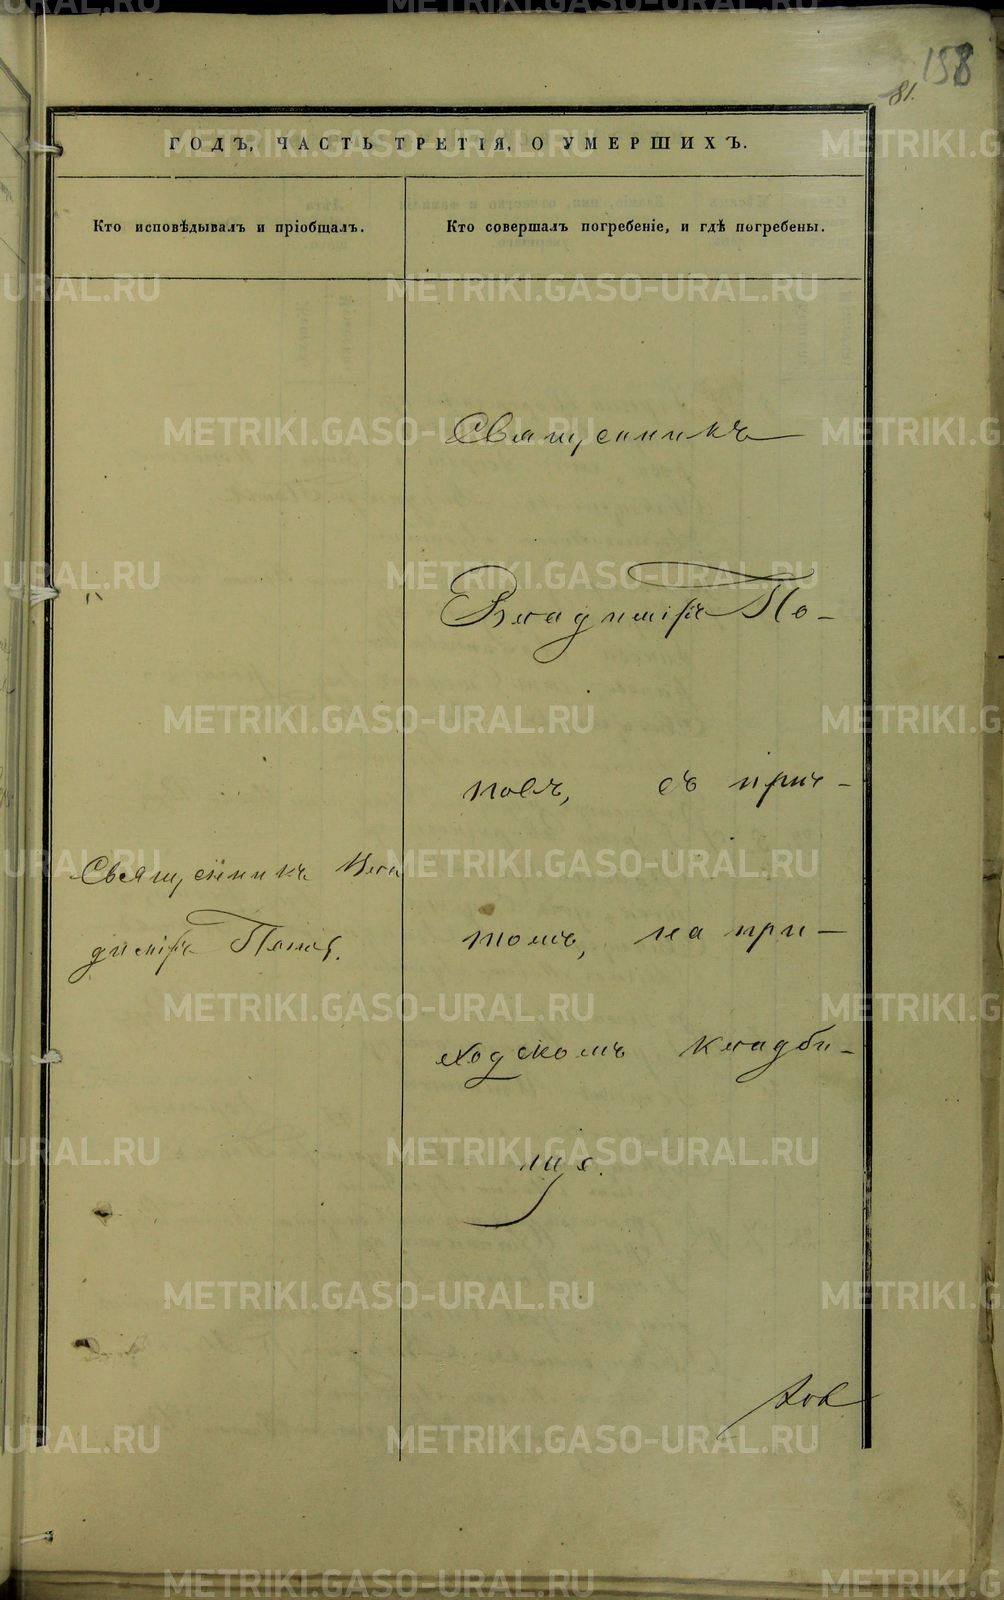 158
81.
ГОДЪ, ЧАСТЬ ТРЕТІЯ, О УМЕРШИХЪ.
Кто исповѣдывалъ и пріобщалъ.
Кто совершалъ погребеніе, и гдѣ погребены.
Священникъ Вла
диміръ Поповъ.
Священникъ
Владиміръ По-
повъ, съ прич-
томъ, на при-
ходскомъ кладби-
щѣ.
METRIKI.GASO-URAL.RU